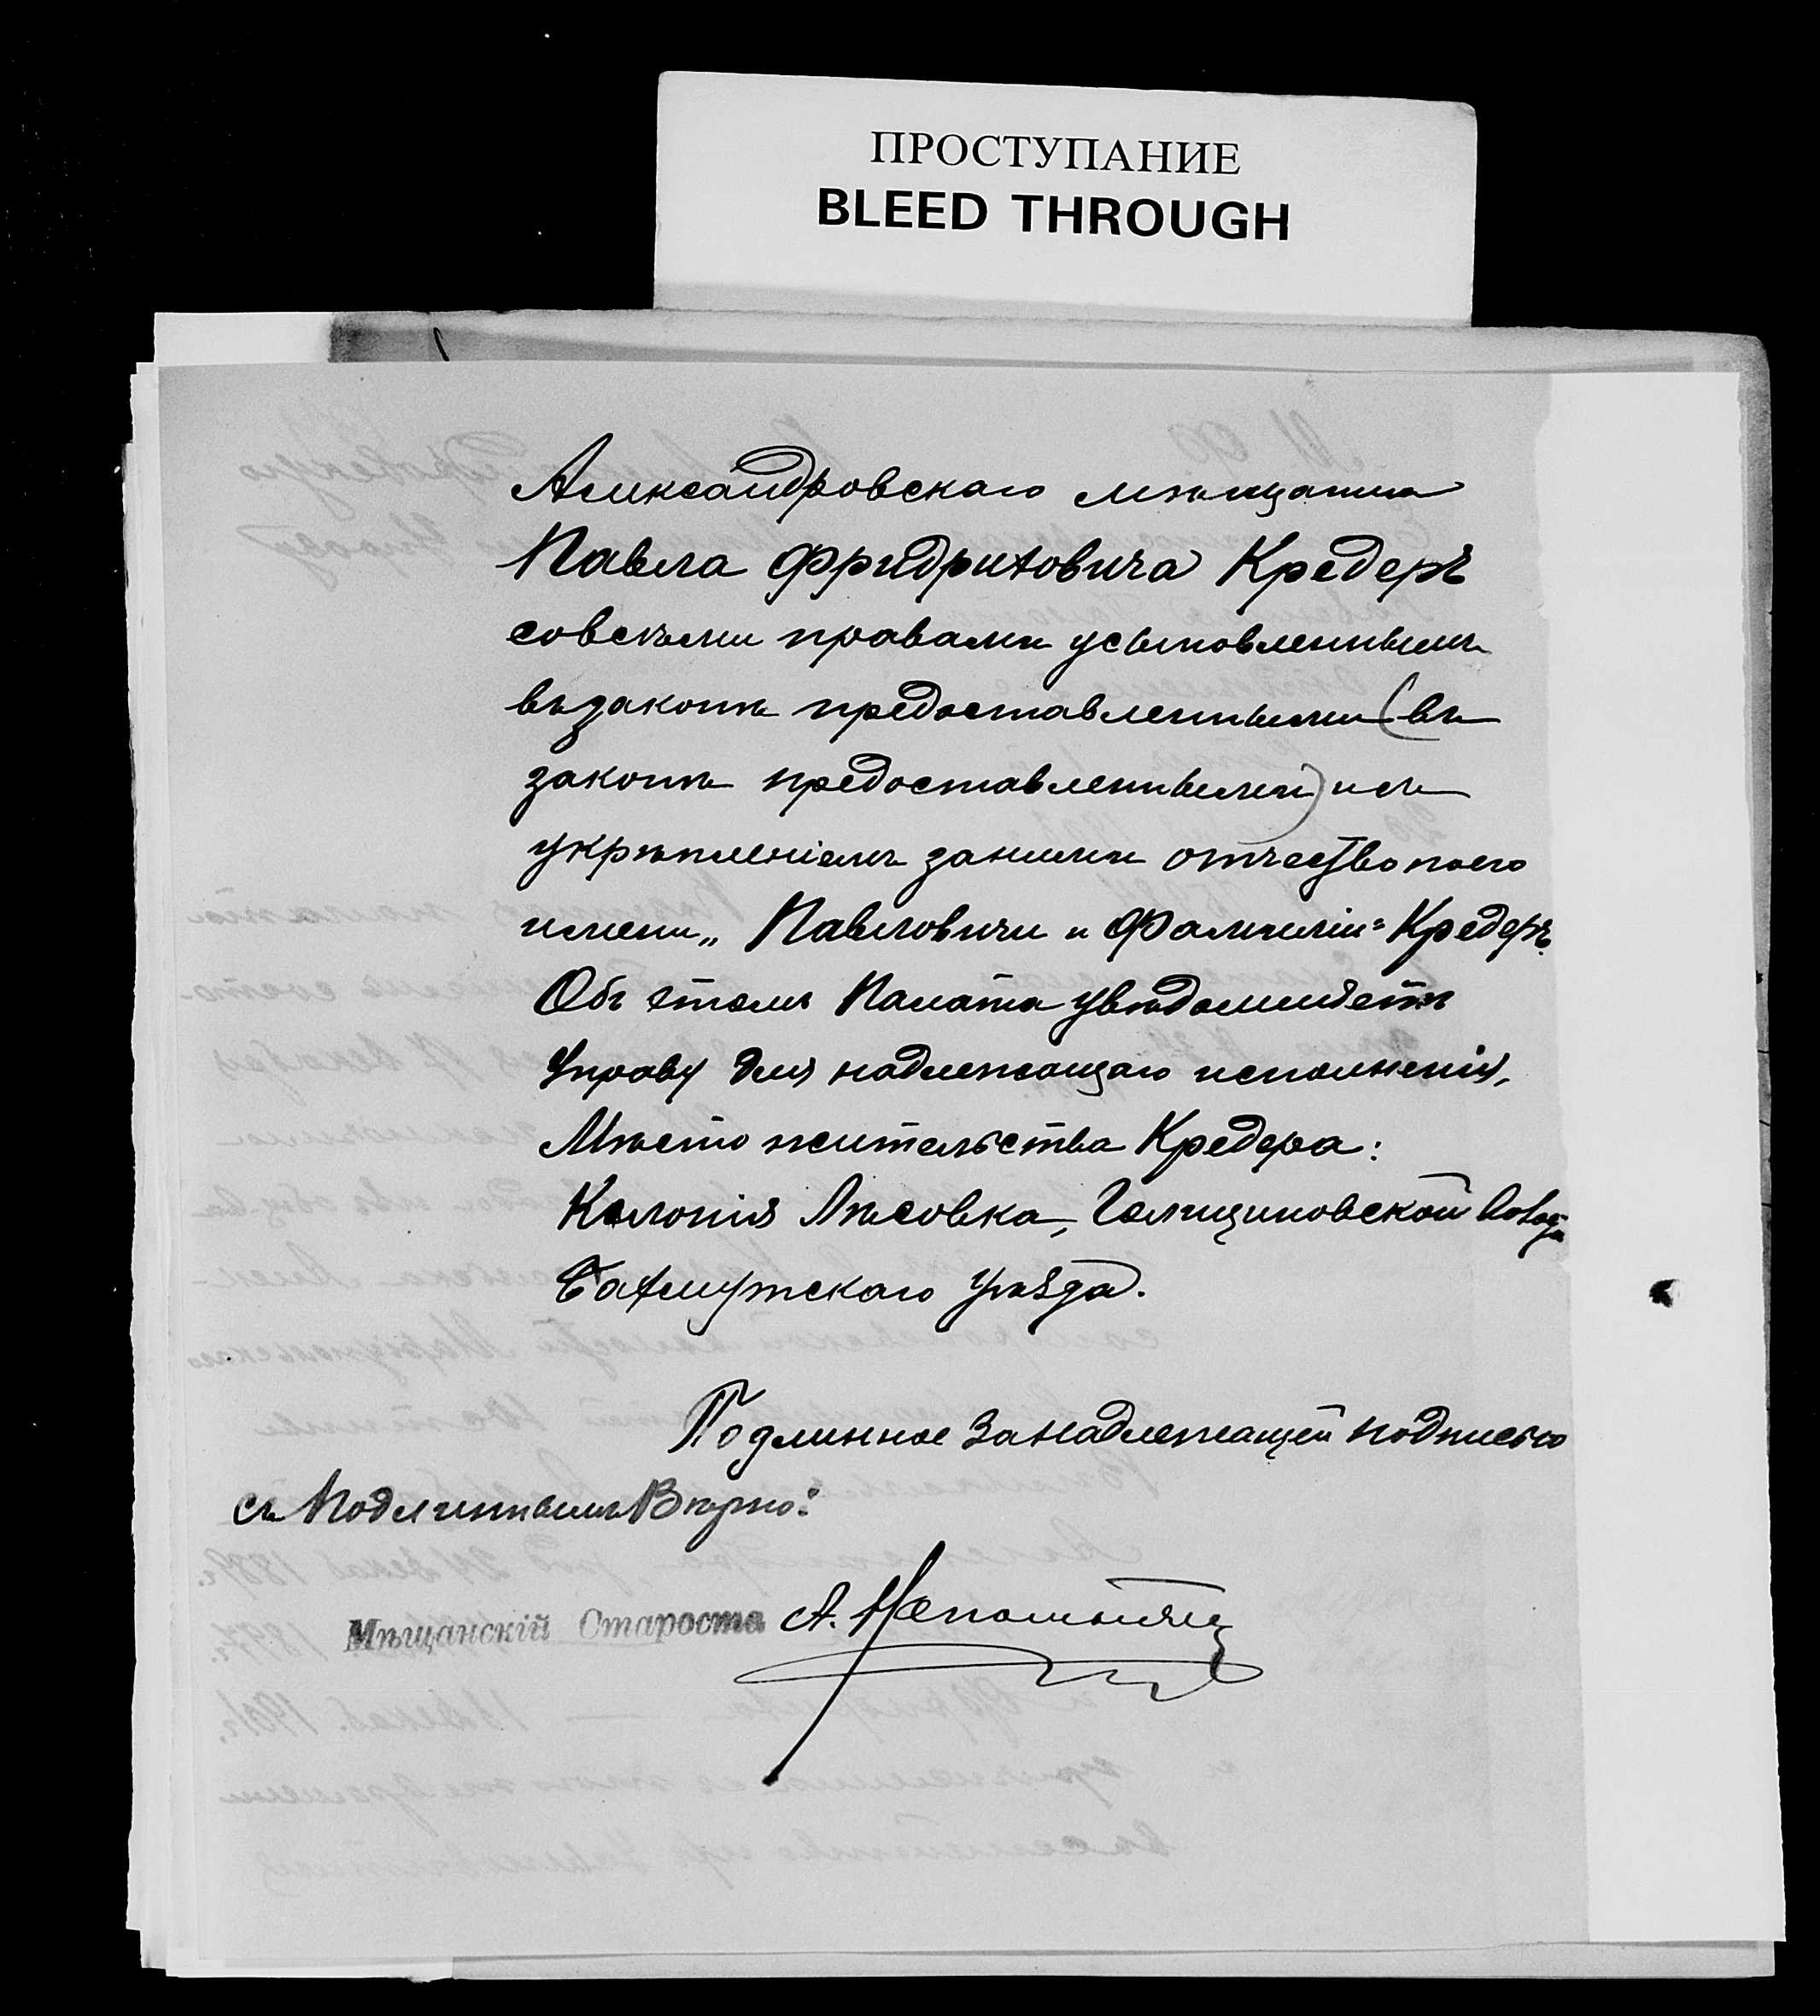 ПРОСТУПАНИЕ
BLEED THROUGH
Александровскаго мѣщанина
Павла Фридриховича Кредеръ
совсѣми правами усыновленнымъ
въ законѣ предоставленными (въ
законѣ предоставленными) и съ
укрѣпленіемъ заними отчество по его
имени „ Павловичи и Фамиліи = Кредеръ.
Объ этомъ Палата увѣдомляетъ
Управу для надлежащаго исполненія,
Мѣсто жительства Кредера:
Колонія Лѣсовка, Голициновской
Бахмутскаго уѣзда.
Подлинное за надлежащей подписью
съ Подлиннымъ Вѣрно:
Мѣщанскій Староста А.